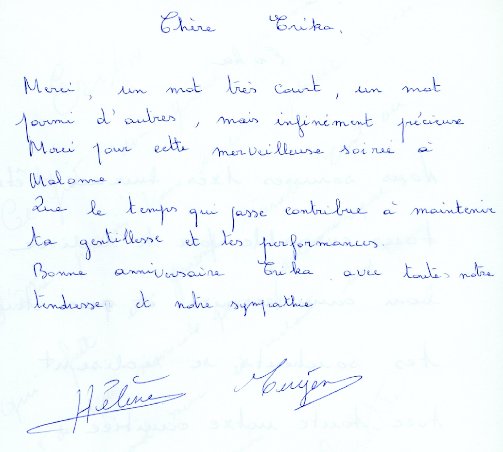 Chère Erika,
Merci, un mot très court, un mot
parmi d'autres, mais infinément précieuse
Merci pour cette merveilleuse soirée à
Malonne.
Que le temps qui passe contribue à maintenir
ta gentillesse et tes performances
Bonne anniversaire Erika avec toutes notre
tendresse et notre sympathie
Hélène